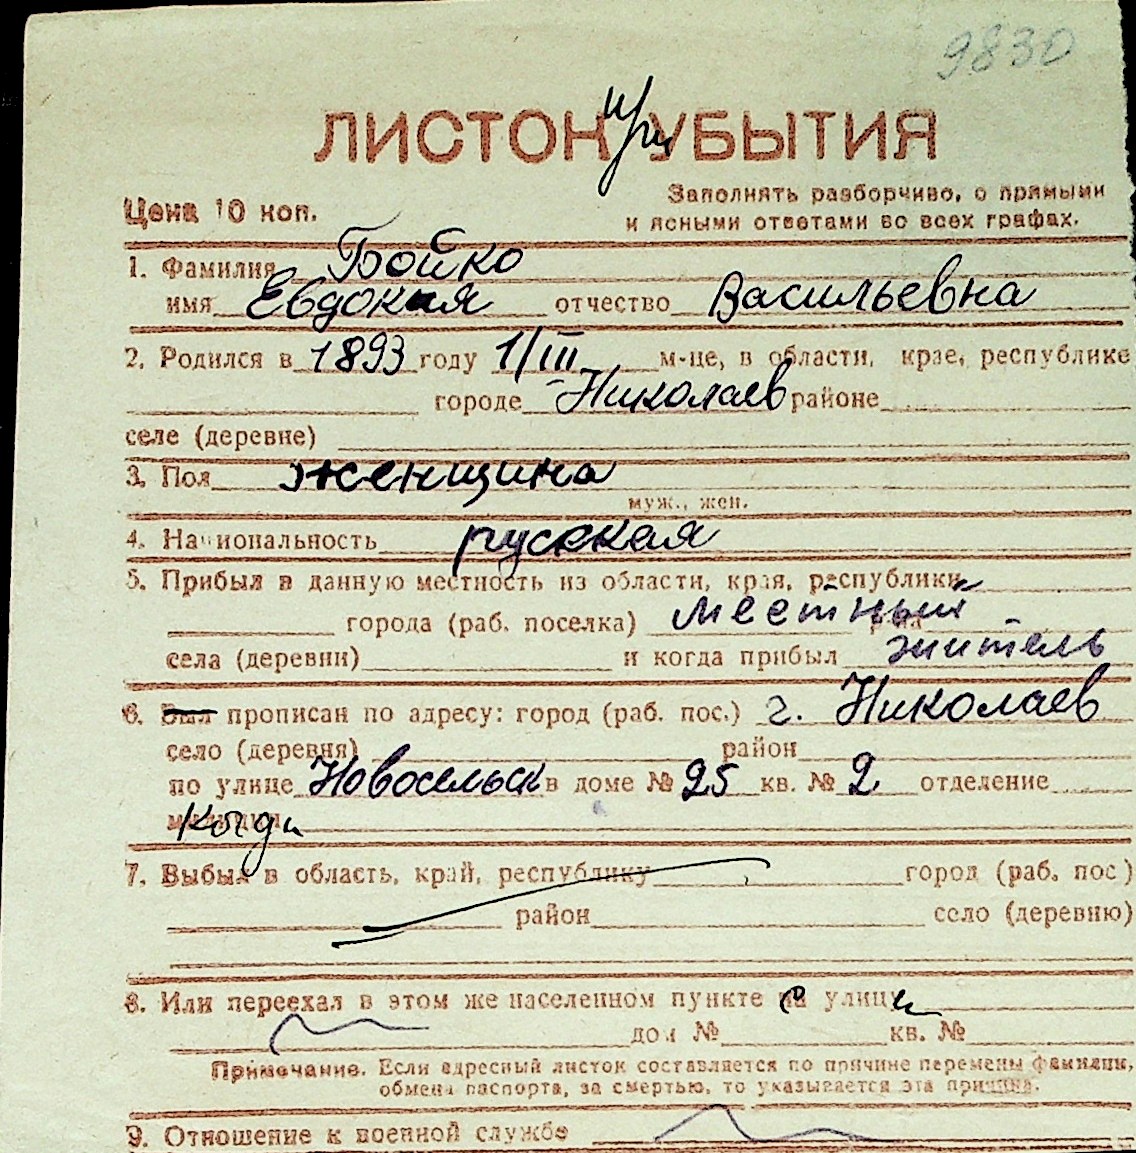 9830
ЛИСТОК при УБЫТИЯ
Цена 10 коп.
Заполнять разборчиво, с прямыми
и ясными ответами во всех графах.
1. Фамилия Бойко
имя Евдокия отчество Васильевна
2. Родился в 1893 году 1/III м-це, в области, крае, республике
городе Николаев районе
селе (деревне)
3. Пол женщина
муж., жен.
4. Национальность русская
5. Прибыл в данную местность из области, края, республики
города (раб. поселка) местный
села (деревни) и когда прибыл житель
6. Был прописан по адресу: город (раб. пос.) г. Николаев
село (деревня) район
по улице Новосельск в доме № 25 кв. № 2 отделение
милиции
7. Выбыл в область, край, республику город (раб. пос.)
район село (деревню)
8. Или переехал в этом же населенном пункте с улицы
дом № кв. №
Примечание. Если адресный листок составляется по причине перемены фамилии,
обмена паспорта, за смертью, то указывается эта причина.
9. Отношение к военной службе